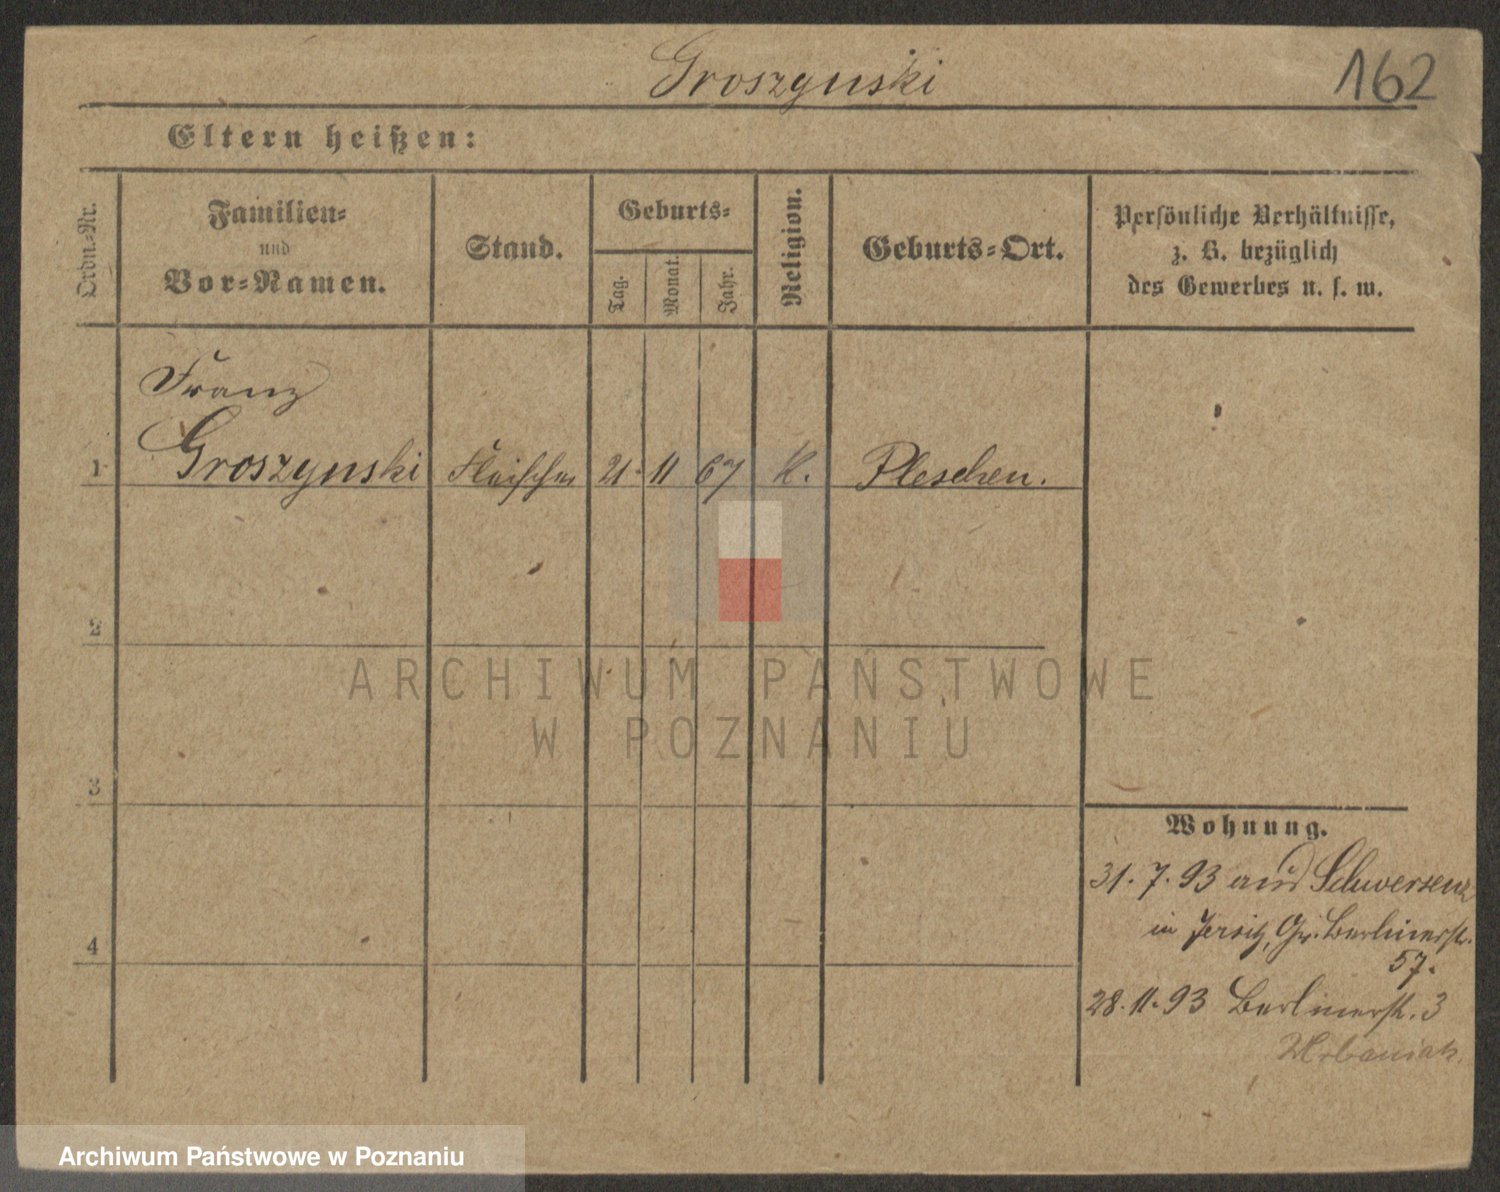 Groszynski
162
Eltern heißen:
Ordn.-Nr.
Familien-
und
Vor-Namen.
Stand.
Geburts-
Tag.
Monat.
Jahr.
Religion.
Geburts-Ort.
Persönliche Verhältnisse,
z. B. bezüglich
des Gewerbes u. s. w.
Franz
1 Groszynski Fleischer 21. 11 67 K. Pleschen.
2
3
4
ARCHIWUM PAŃSTWOWE
W POZNANIU
Wohnung.
31. 7. 93 aus Schwersenz
in Jersitz, Gr. Berlinerstr.
57.
28. 11. 93 Berlinerstr. 3
Urbaniak.
Archiwum Państwowe w Poznaniu